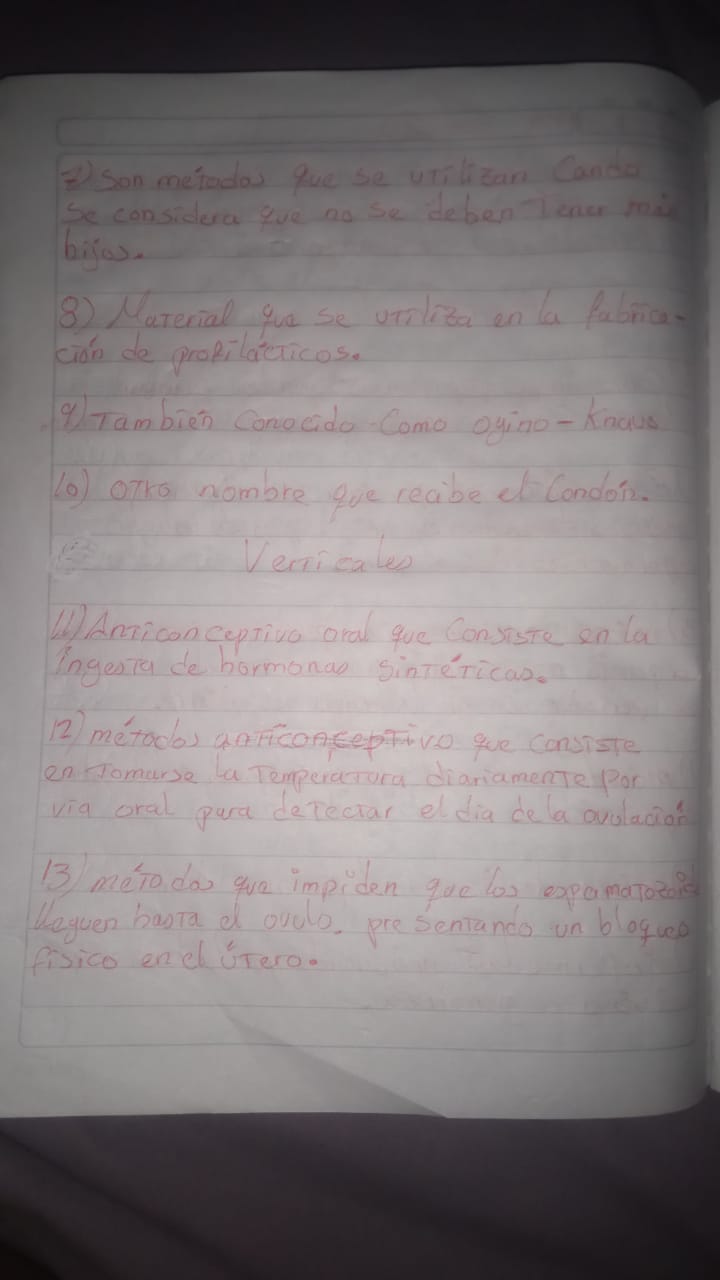 7) Son metodos que se utilizan Cando
Se considera que no se deben Tener más
hijos.
8) Material que se utiliza en la fabrica-
ción de profilácticos.
9) También Conocido Como Ogino - Knaus
10) OTRO nombre que recibe el Condón.
Verticales
11) Anticonceptivo oral que Consiste en la
Ingesta de hormonas sintéticas.
12) métodos anticonceptivo que Consiste
en Tomarse la Temperatura diariamente por
via oral para detectar el dia de la ovulación
13) métodos que impiden que los espamatozoid
lleguen hasta el ovulo. presentando un bloqueo
físico en el útero.